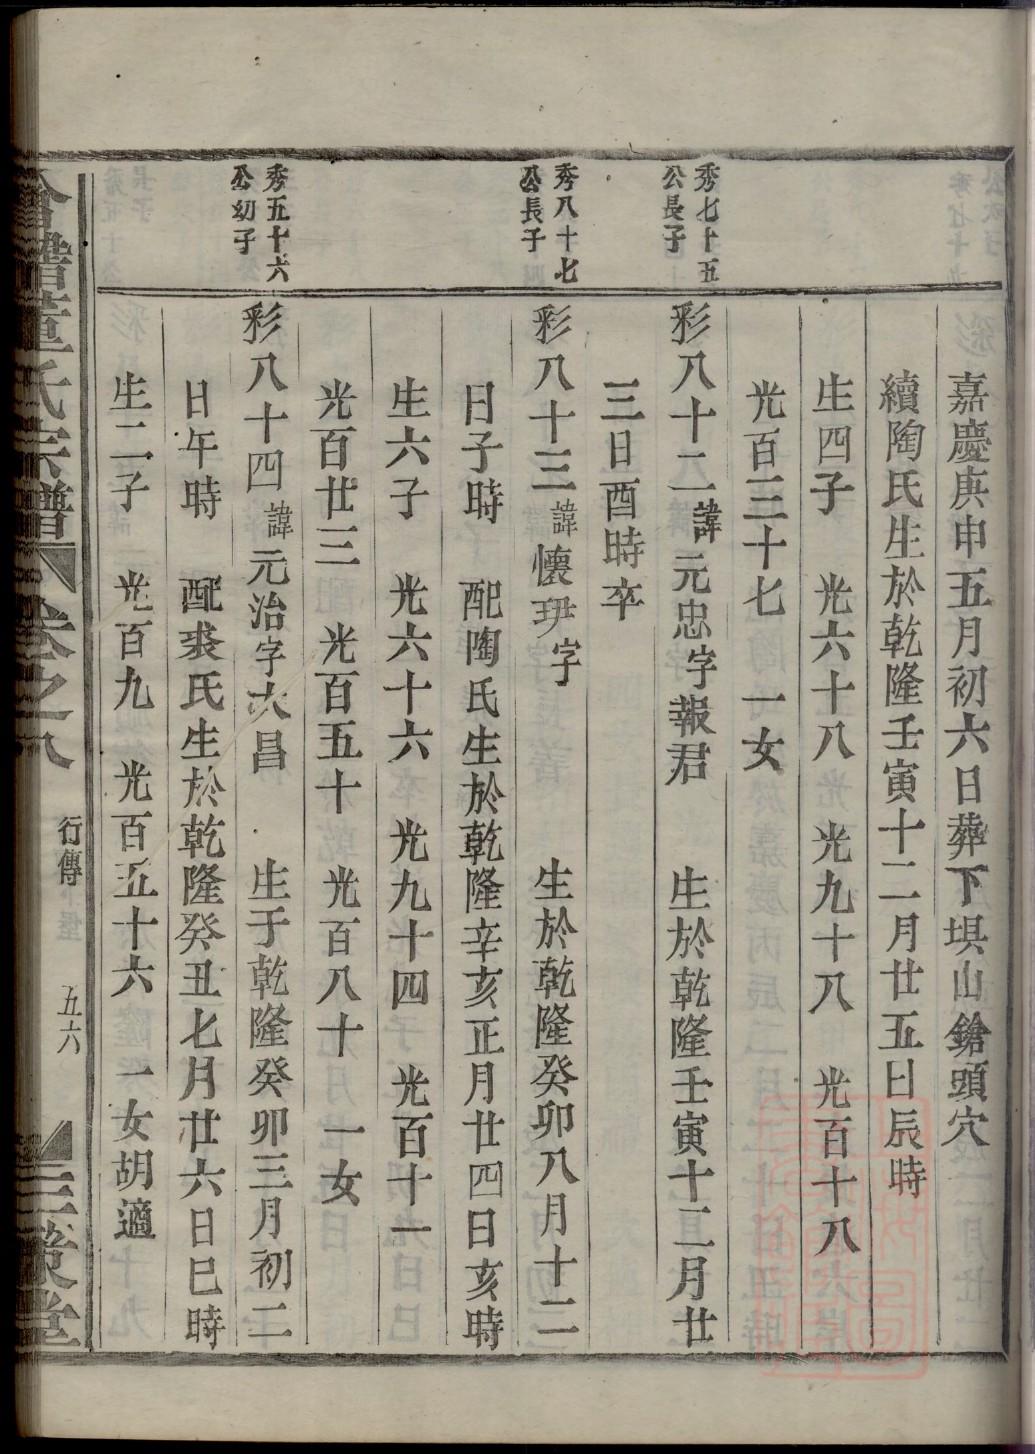 嘉慶庚申五月初六日葬下垻山鎗頭穴
續陶氏生於乾隆壬寅十二月廿五日辰時
生四子 光六十八 光九十八 光百十八
光百三十七 一女
秀七十五
公長子
彩八十二諱元忠字報君 生於乾隆壬寅十二月廿
三日酉時卒
秀八十七
公長子
彩八十三諱懷玡字 生於乾隆癸卯八月十二
日子時 配陶氏生於乾隆辛亥正月廿四日亥時
生六子 光六十六 光九十四 光百十一
光百廿三 光百五十 光百八十 一女
秀五十六
公幼子
彩八十四諱元治字大昌 生于乾隆癸卯三月初二
日午時 配裘氏生於乾隆癸丑七月廿六日巳時
生二子 光百九 光百五十六 一女胡適
合譜董氏宗譜 卷之八 行傳 五六 三策堂